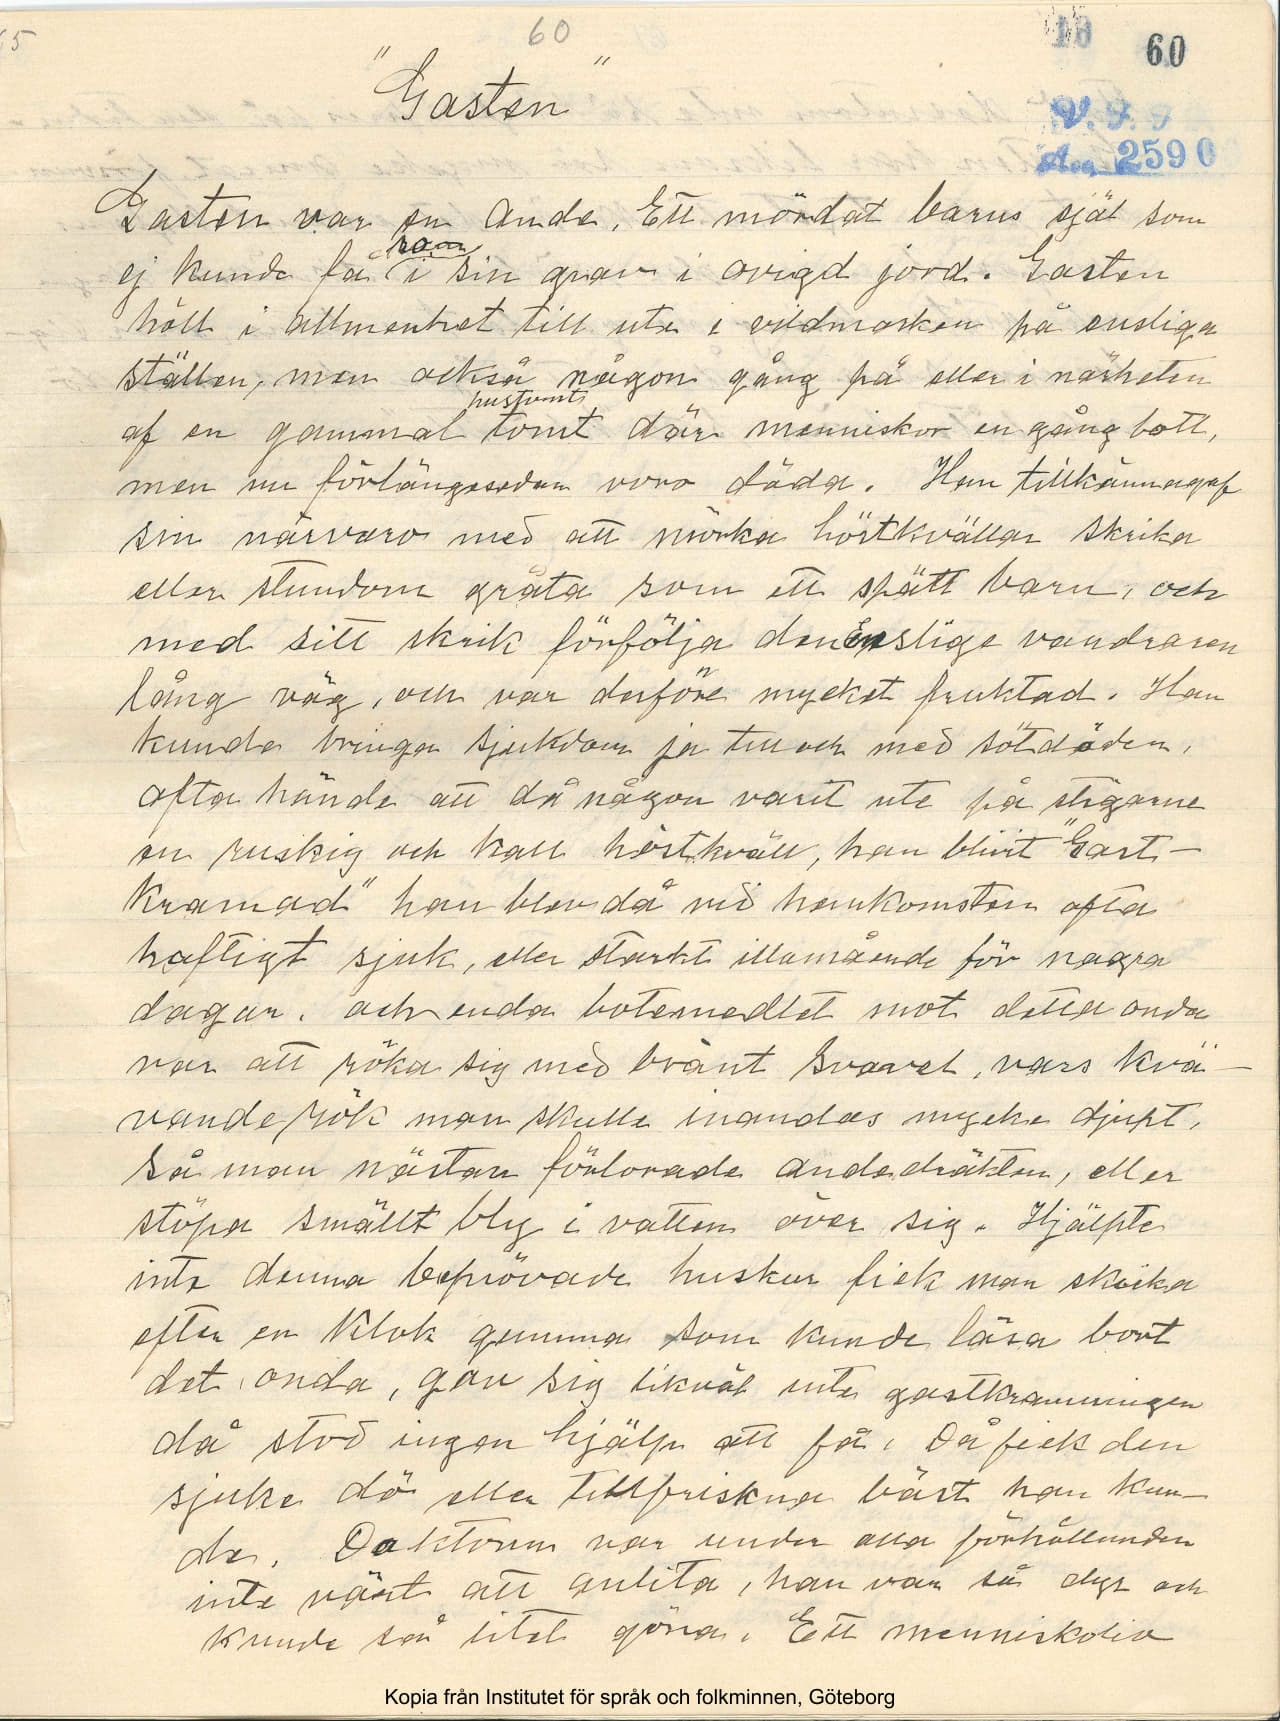 60
60
"Gasten"
V. F. F
Acc 2590
Gasten var en ande. Ett mördat barns själ som
ro
ej kunde få i sin grav i ovigd jord. Gasten
höll i allmenhet till ute i vildmarken på ensliga
ställen, men också någon gång på eller i närheten
hustomt
af en gammal tomt där menniskor en gång bott,
men nu förlängesedan voro döda. Han tillkännagaf
sin närvaro med att mörka höstkvällar skrika
eller stundom gråta som ett spätt barn, och
med sitt skrik förfölja den enslige vandraren
lång väg, och var derföre mycket fruktad. Han
kunde bringa sjukdom ja till och med sötdöden,
ofta hände att då någon varit ute på stigarne
en ruskig och kall höstkväll, han blivit "Gast-
kramad" han blev då vid hemkomsten ofta
haftigt sjuk, eller starkt illamående för nagra
dagar. och enda botemedlet mot detta onda
var att röka sig med bränt svavel, vars kvä-
vande rök man skulle inandas mycke djupt,
så man nästan förlorade andedräkten, eller
stöpa smällt bly i vatten över sig. Hjälpte
inte denna beprövade huskur fick man skicka
efter en klok gumma som kunde läsa bort
det onda, gav sig likväl inte gastkramningen
då stod ingen hjälp att få, Då fick den
sjuke dö eller tillfriskna bäst han kun-
de. Doktorn var under alla förhållanden
inte värt att anlita, han var så dyr och
kunde så litet göra. Ett menniskoliv
Kopia från Institutet för språk och folkminnen, Göteborg